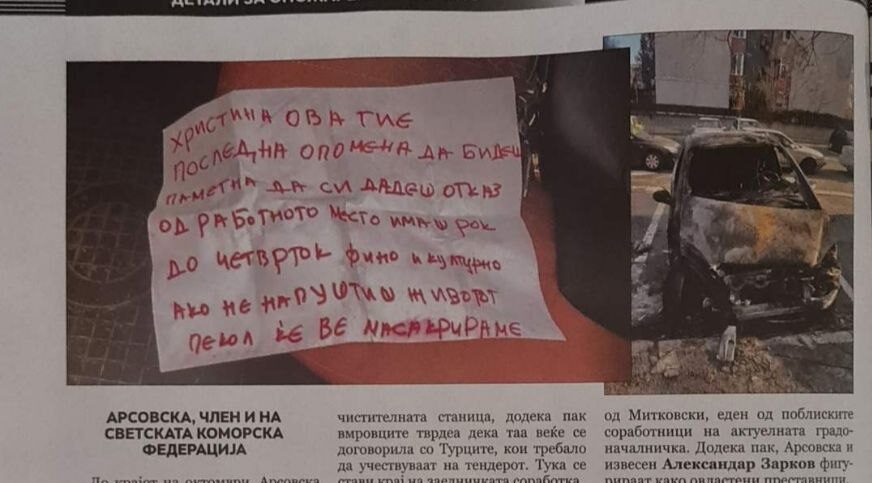 ДЕТАЛИ ЗА
ХРИСТИНА ОВА ТИЕ
ПОСЛЕДНА ОПОМЕНА ДА БИДЕШ
ПАМЕТНА ДА СИ ДАДЕШ ОТКАЗ
ОД РАБОТНОТО МЕСТО ИМАШ РОК
ДО ЧЕТВРТОК ФИНО И КУЛТУРНО
АКО НЕ НАПУШТИШ ЖИВОТ
ПЕКОЛ ЌЕ ВЕ МАСАКРИРАМЕ
АРСОВСКА, ЧЛЕН И НА
СВЕТСКАТА КОМОРСКА
ФЕДЕРАЦИЈА
До крајот на октомври, Арсовска
чистителната станица, додека пак
вмровците тврдеа дека таа веќе се
договорила со Турците, кои требало
да учествуваат на тендерот. Тука се
стави крај на заедничката соработка
од Митковски, еден од поблиските
соработници на актуелната градо-
началничка. Додека пак, Арсовска и
извесен Александар Зарков фигу-
рираат како овластени преставници